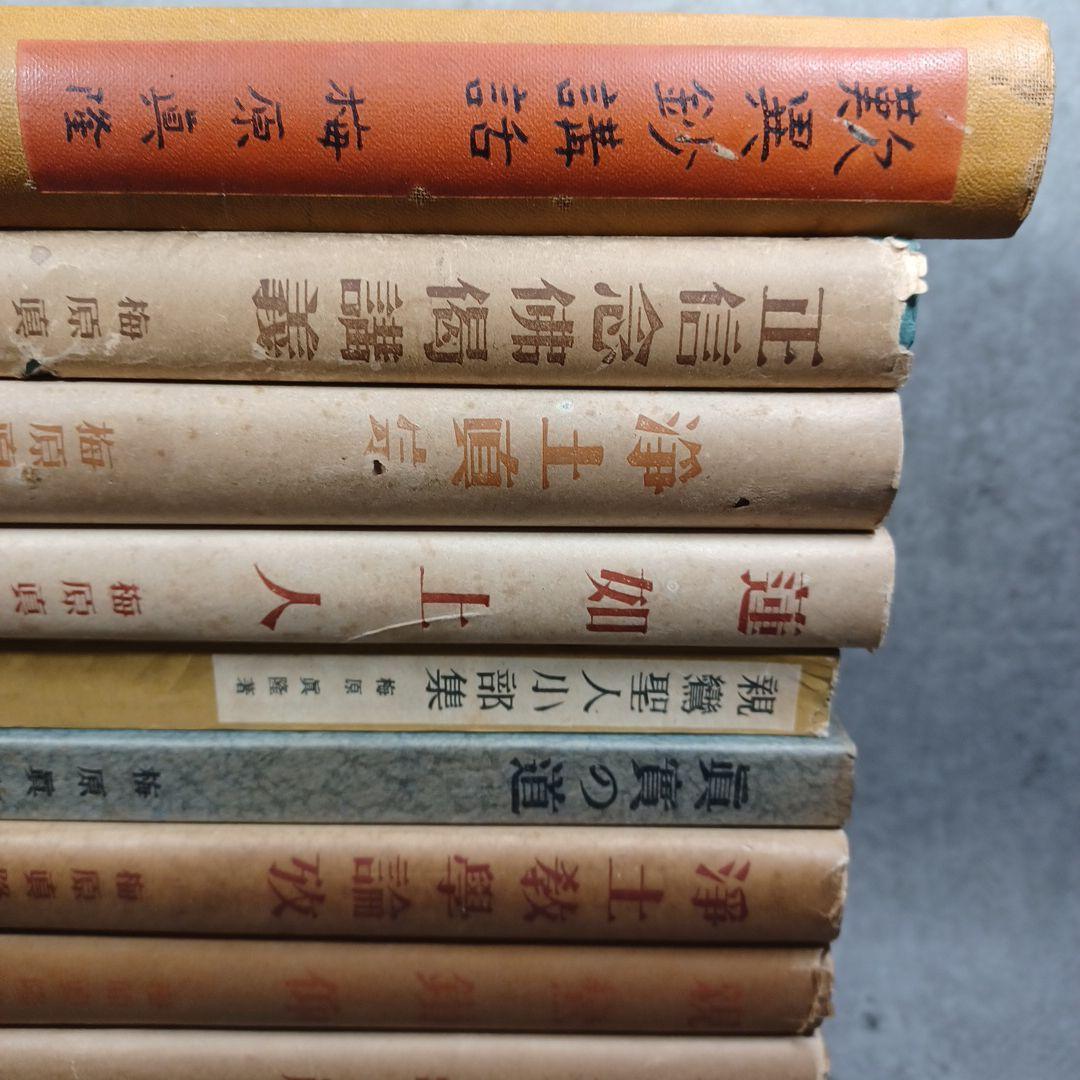 歎異鈔講話 梅原眞隆
正信念佛偈講義 梅原眞
淨土眞宗 梅原眞
蓮如上人 梅原眞
親鸞聖人小部集 梅原眞隆著
眞實の道 梅原眞
淨土教學論攷 梅原眞隆